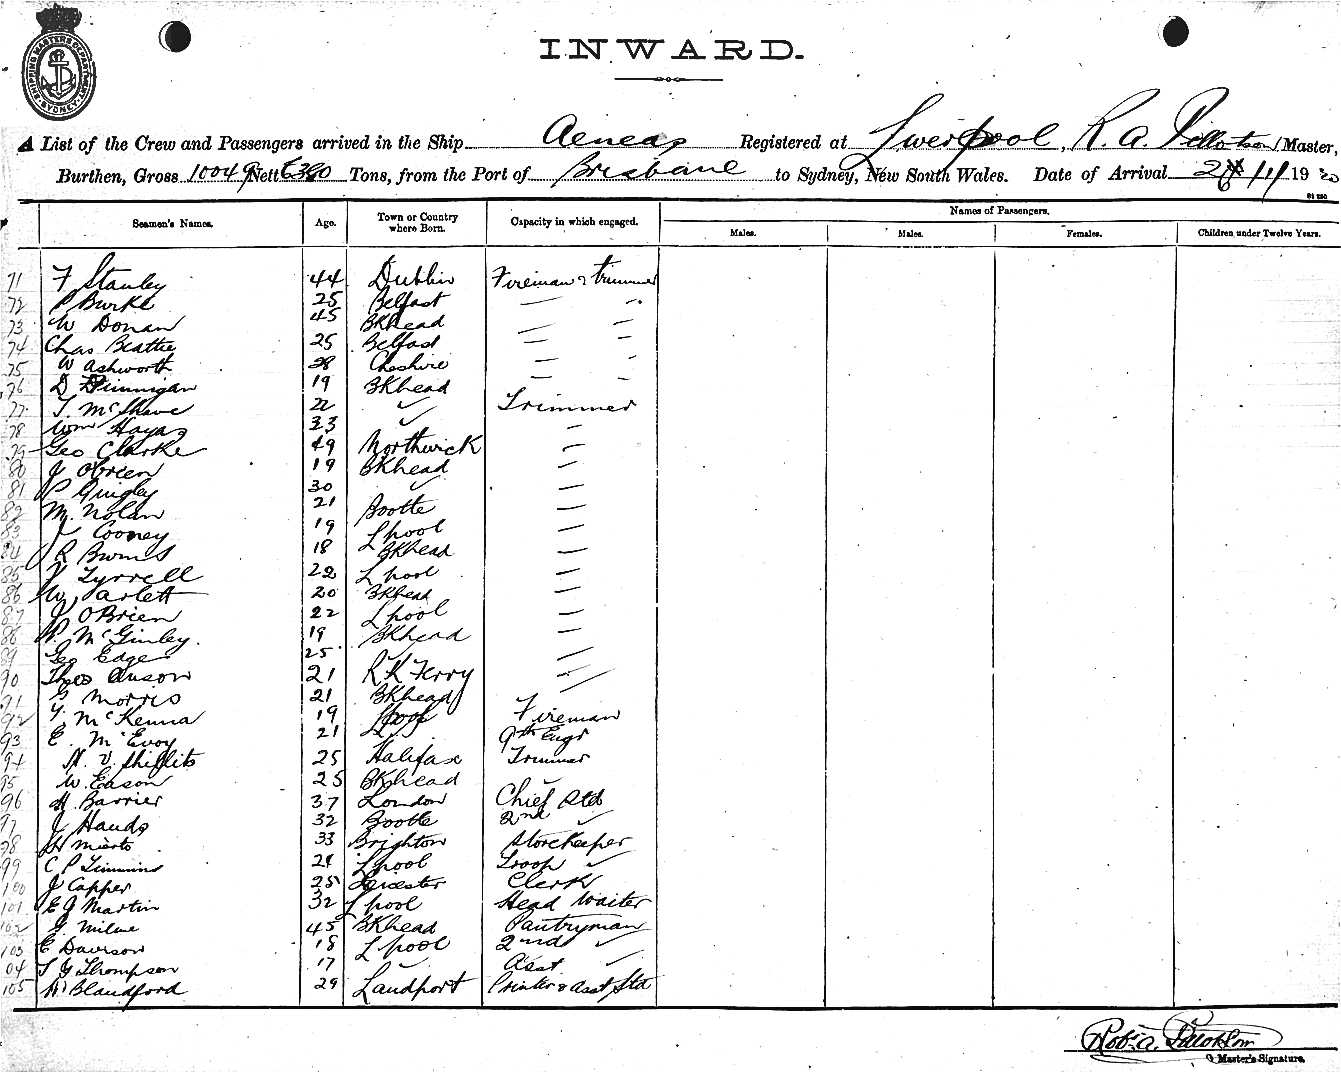 SHIPPING MASTERS DEPARTMENT SYDNEY
INWARD.
A List of the Crew and Passengers arrived in the Ship Aeneas Registered at Liverpool, R. A. Tillotson Master,
Burthen, Gross 10049 Nett 6380 Tons, from the Port of Brisbane to Sydney, New South Wales. Date of Arrival /11/1920
Seamen's Names. Age. Town or Country where Born. Capacity in which engaged. Names of Passengers.
Males. Males. Females. Children under Twelve Years.
71 F Stanley 44 Dublin Fireman & Trimmer
72 P Burke 25 Belfast — "
73 W Donan 45 BKhead — —
74 Chas Beattie 25 Belfast — —
75 W Ashworth 28 Cheshire — —
76 D Dinnigan 19 BKhead — —
77 T. McShane 22 ✓ Trimmer
78 Wm Hayas 33 ✓ —
79 Geo Clarke 49 Northwick —
80 J O'Brien 19 BKhead —
81 P Gingley 30 ✓ —
82 M. Nolan 21 Bootle —
83 J Cooney 19 Lpool —
84 R Burns 18 BKhead —
85 Tyrrell 22 Lpool —
86 W. Arlett 20 BKhead —
87 J O'Brien 22 Lpool —
88 P. McGinley. 19 BKhead —
89 Geo Edge 25 —
90 Thos Anson 21 RK Ferry —
91 Morris 21 BKhead
92 McKenna 19 Lpool Fireman
93 E. McEvoy 21 9th Engr
94 H. V. Shillito 25 Halifax Trimmer
95 W. Eason 25 BKhead
96 H Barrier 37 London Chief Std
97 J Hands 32 Bootle 2nd ✓
98 H 33 Brighton Storekeeper
99 C P Timmins 21 Lpool Troop ✓
100 J Capper 25 Leicester Clerk
101 E J Martin 32 Lpool Head Waiter
102 G. Milne 45 BKhead Pantryman
103 E Davison 18 Lpool 2nd ✓
104 T G Thompson 17 ✓ Asst ✓
105 H Blandford 29 Landport Printer & Asst Std
Robt. A. Tillotson
Master's Signature.